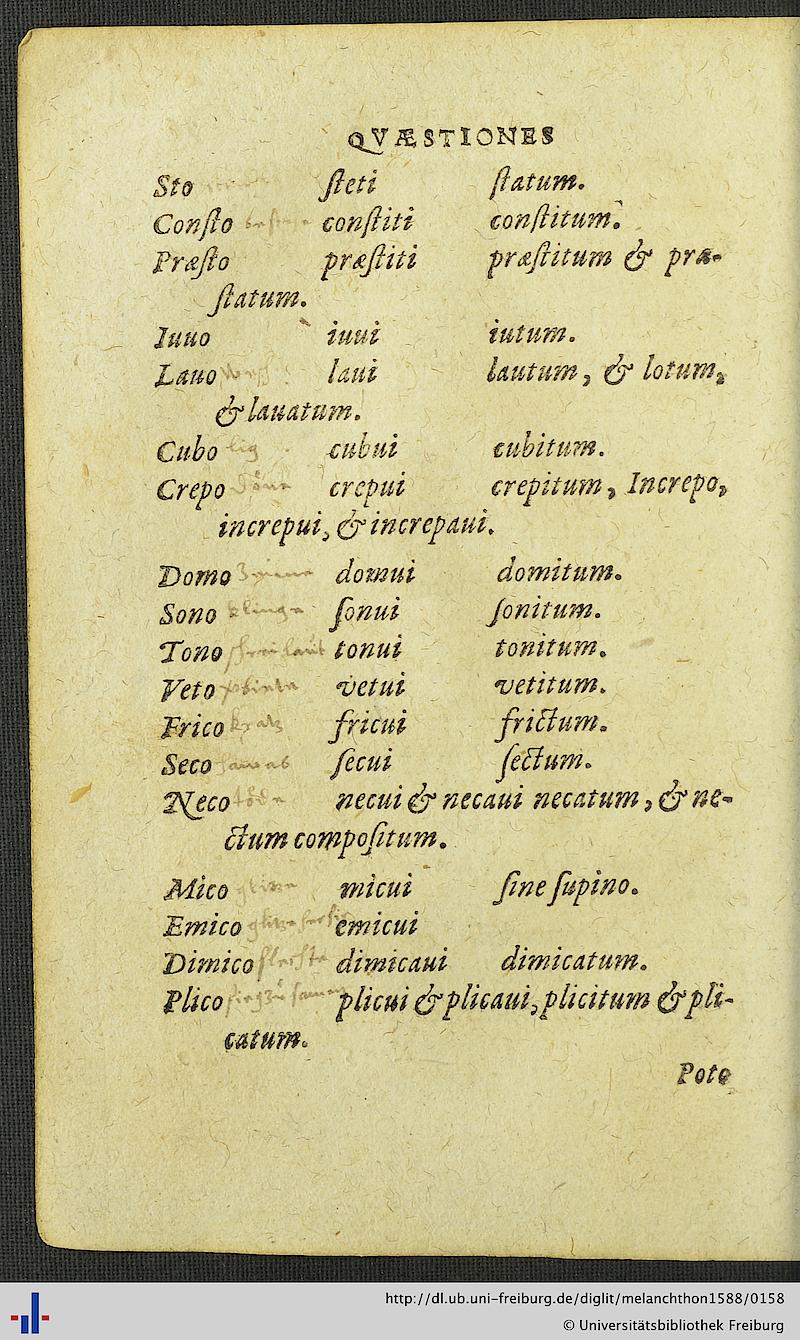 QVÆSTIONES
Sto ſteti ſtatum.
Conſto conſtiti conſtitum.
Præſto præſtiti præſtitum & præ-
ſtatum.
Iuuo iuui iutum.
Lauo laui lautum, & lotum,
& lauatum.
Cubo lig cubui cubitum.
Crepo crepui crepitum, Increpo,
increpui, & increpaui.
Domo domui domitum.
Sono klinge ſonui ſonitum.
Tono tonui tonitum.
Veto vetui vetitum.
Frico kratz fricui frictum.
Seco ſecui ſectum.
Neco töde necui & necaui necatum, & ne-
ctum compoſitum.
Mico micui ſine ſupino.
Emico emicui
Dimico dimicaui dimicatum.
Plico plicui & plicaui, plicitum & pli-
catum.
Poto
http://dl.ub.uni-freiburg.de/diglit/melanchthon1588/0158
© Universitätsbibliothek Freiburg